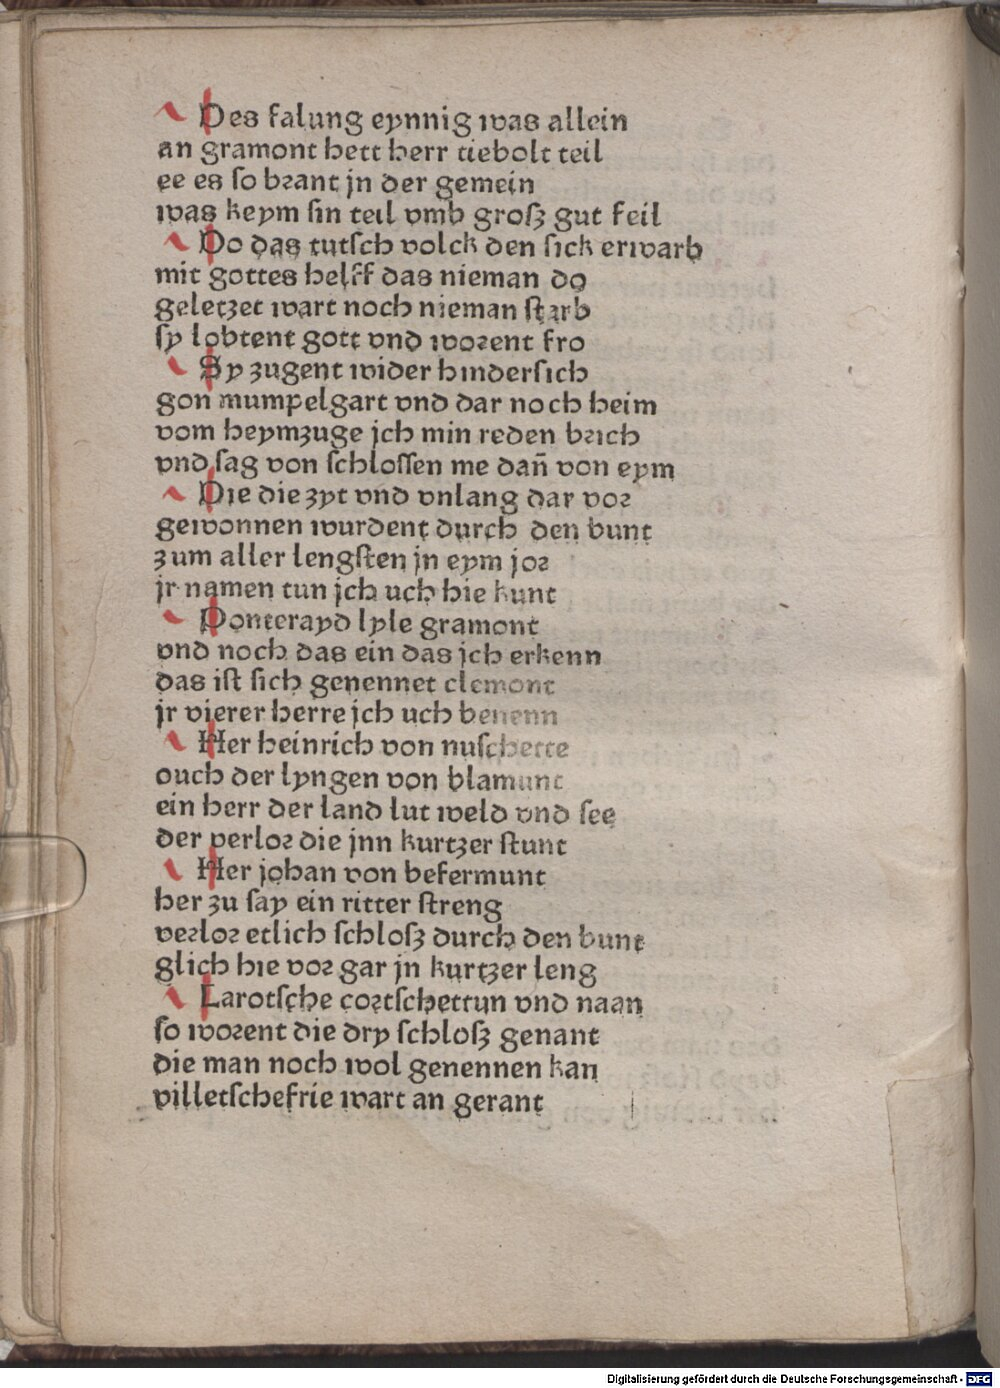 Des falung eynnig was allein
an gramont hett herr tiebolt teil
ee es ſo bꝛant jn der gemein
was keym ſin teil vmb groſʒ gut feil
Do das tutſch volck den ſick erwarb
mit gottes helff das nieman do
geletzet wart noch nieman ſtarb
ſy lobtent gott vnd woꝛent fro
Sy zugent wider hinderſich
gon mumpelgart vnd dar noch heim
vom heymzuge jch min reden bꝛich
vnd ſag von ſchloſſen me dan̄ von eym
Die die zyt vnd vnlang dar voꝛ
gewonnen wurdent durch den bunt
zum aller lengſten jn eym joꝛ
jr namen tun jch uch hie kunt
Ponterayd lyle gramont
vnd noch das ein das jch erkenn
das iſt ſich genennet clemont
jr vierer herre jch uch benenn
Her heinrich von nuſchette
ouch der lyngen von blamunt
ein herr der land lut weld vnd ſee
der verloꝛ die jnn kurtzer ſtunt
Her johan von befermunt
her zu ſay ein ritter ſtreng
veꝛloꝛ etlich ſchloſʒ durch den bunt
glich hie voꝛ gar jn kurtzer leng
Larotſche coꝛtſchettun vnd naan
ſo woꝛent die dry ſchloſʒ genant
die man noch wol genennen kan
villetſchefrie wart an gerant
Digitalisierung gefördert durch die Deutsche Forschungsgemeinschaft - DFG